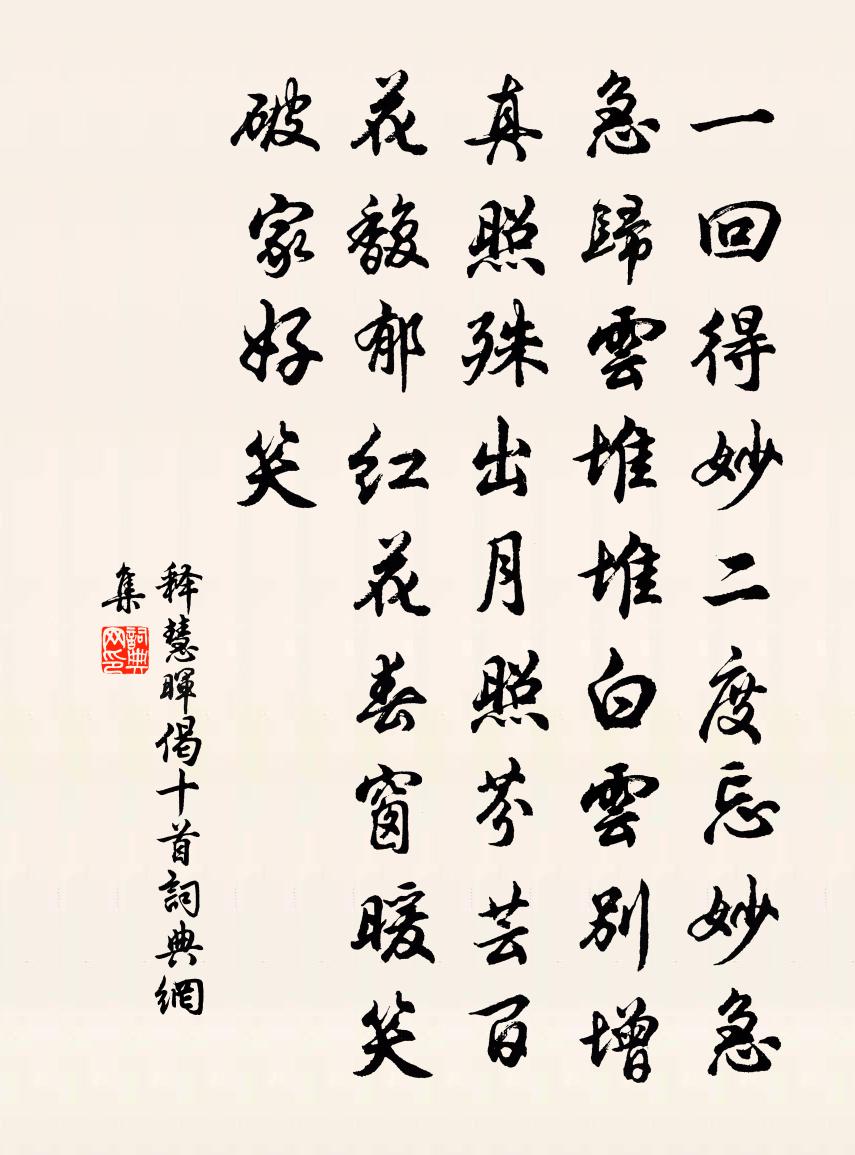 一回得妙二度忘妙急
急歸雲堆堆白雲別增
真照殊出月照芬芸百
花馥郁红花春窗暖笑
破家好笑
释慧暉偈十首詞典網
集
詞典网印